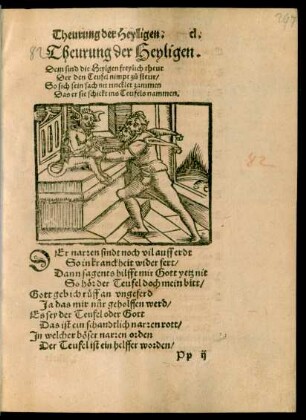 Theurung der Heyligen. cl.
82 Theurung der Heyligen.
Dem sind die Heyligen freylich theur
Der den Teufel nimpt zů steur/
So sich sein sach nit zamen
Das er sie schickt ins Teufels nammen.
82
DEr narren sindt noch vil auff erdt
So in kranckheit wider fert/
Dann sagents hilfft mir Gott yetz nit
So hör der Teufel doch mein bitt/
Gott geb ich rüff an ungeferd
Ja das mir nůr geholffen werd/
Es sey der Teufel oder Gott
Das ist ein schandtlich narren rott/
In welcher böser narren orden
Der Teufel ist ein helffer worden/
Pp ij